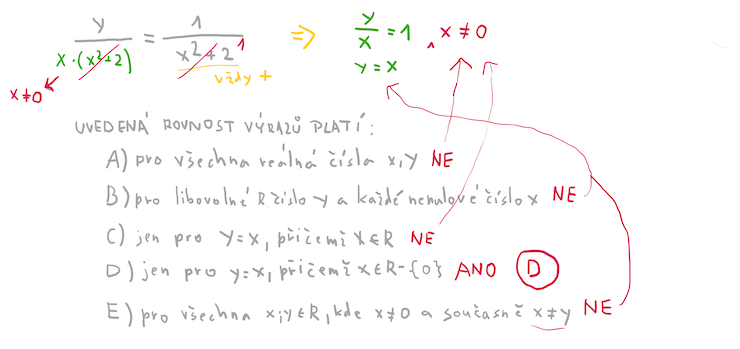 y/(x·(x²+2)) = 1/(x²+2) 1 ⇒ y/x = 1 ∧ x ≠ 0
vždy +
y = x
x ≠ 0
UVEDENÁ ROVNOST VÝRAZŮ PLATÍ:
A) pro všechna reálná čísla x, y NE
B) pro libovolné R číslo y a každé nenulové číslo x NE
C) jen pro y=x, přičemž x∈R NE
D) jen pro y=x, přičemž x∈R-{0} ANO D
E) pro všechna x,y∈R, kde x≠0 a současně x≠y NE